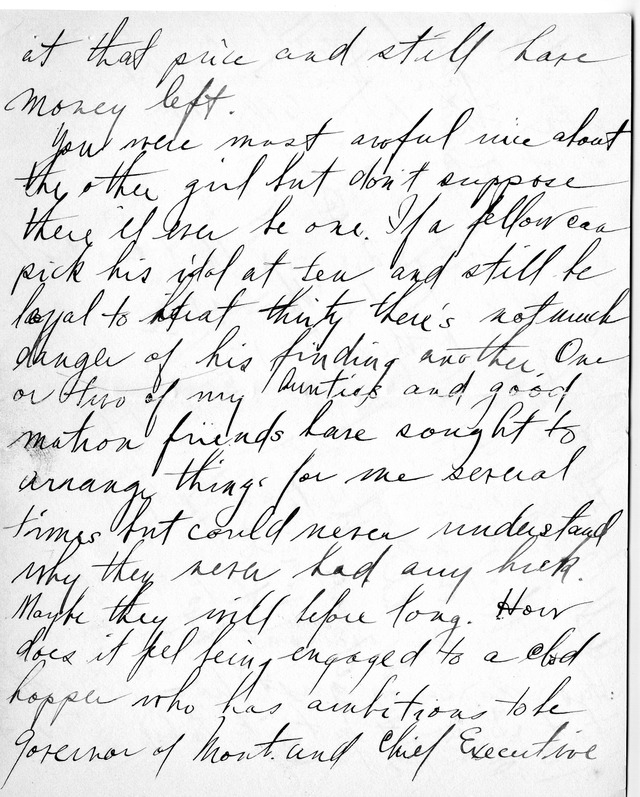 at that price and still have
money left.
You were most awful nice about
the other girl but don't suppose
there'll ever be one. If a fellow can
pick his idol at ten and still be
loyal to it at thirty there's not much
danger of his finding another. One
or two of my Aunties and good
matron friends have sought to
arrange things for me several
times but could never understand
why they never had any luck.
Maybe they will before long. How
does it feel being engaged to a clod
hopper who has ambitions to be
Governor of Mont. and Chief Executive